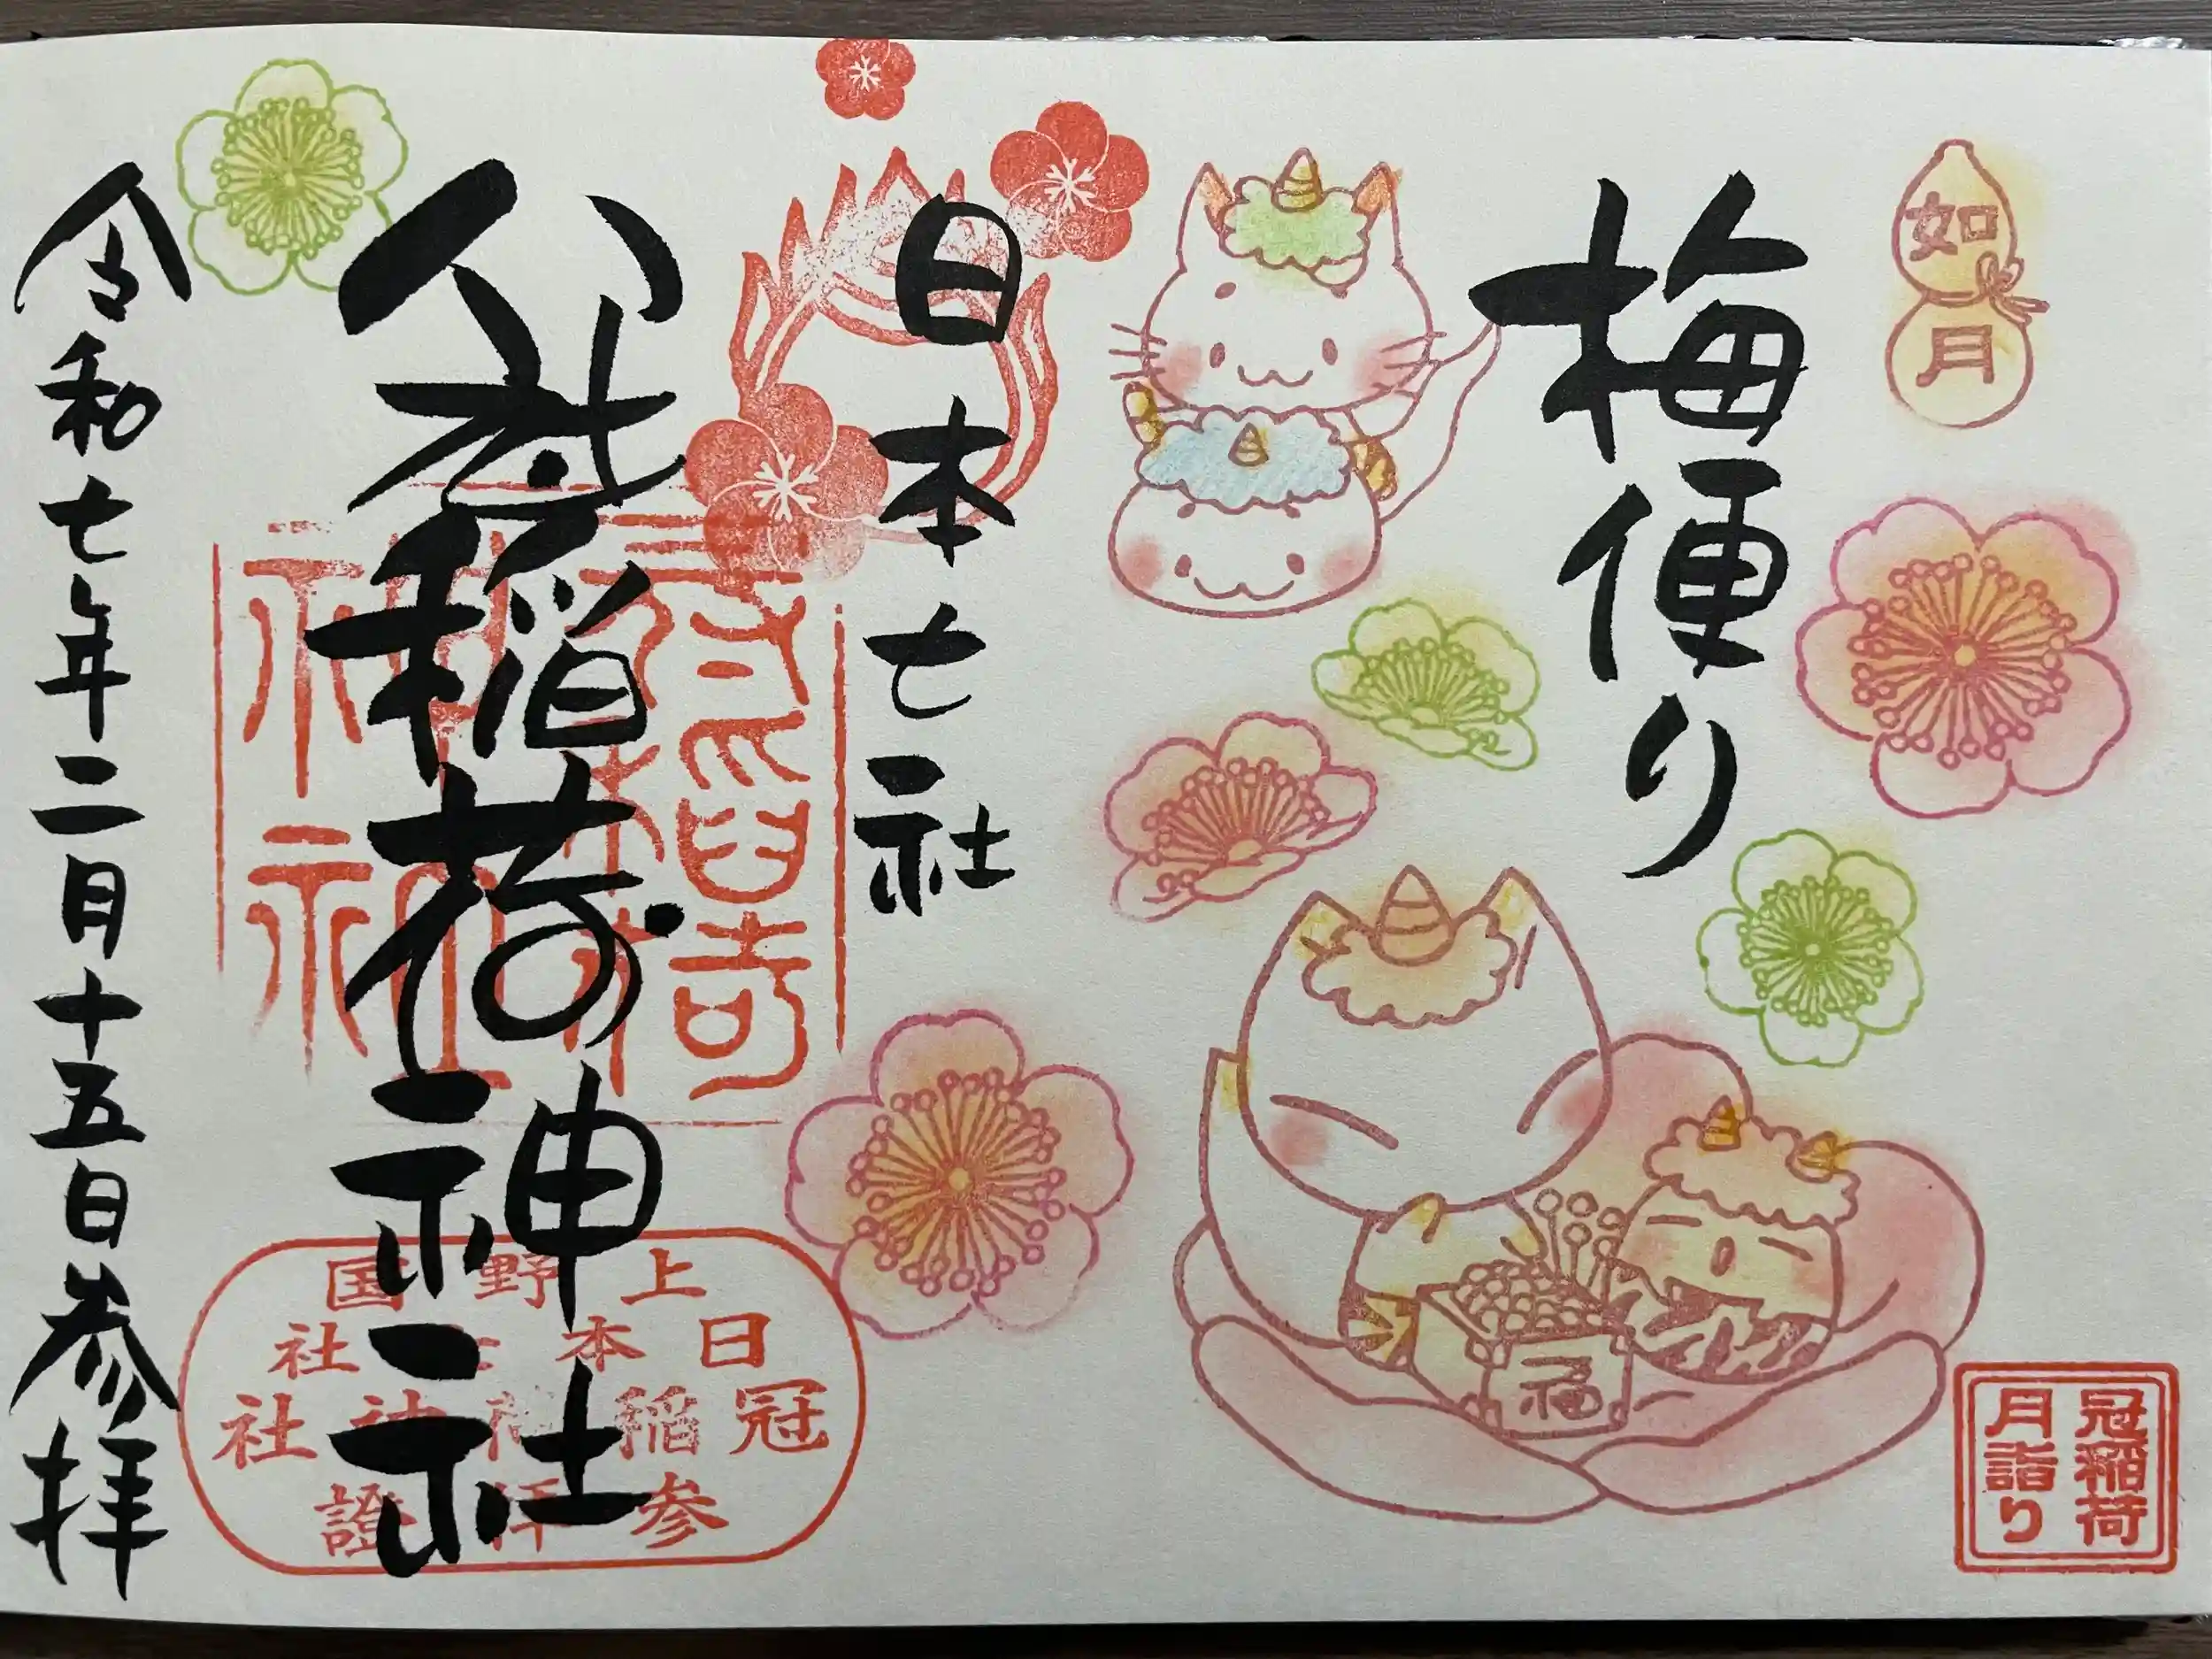 如月
梅便り
福
冠稲荷
月詣り
日本七社
冠稲荷神社
上野国
日本七社
冠稲荷神社
参拝證
令和七年二月十五日参拝